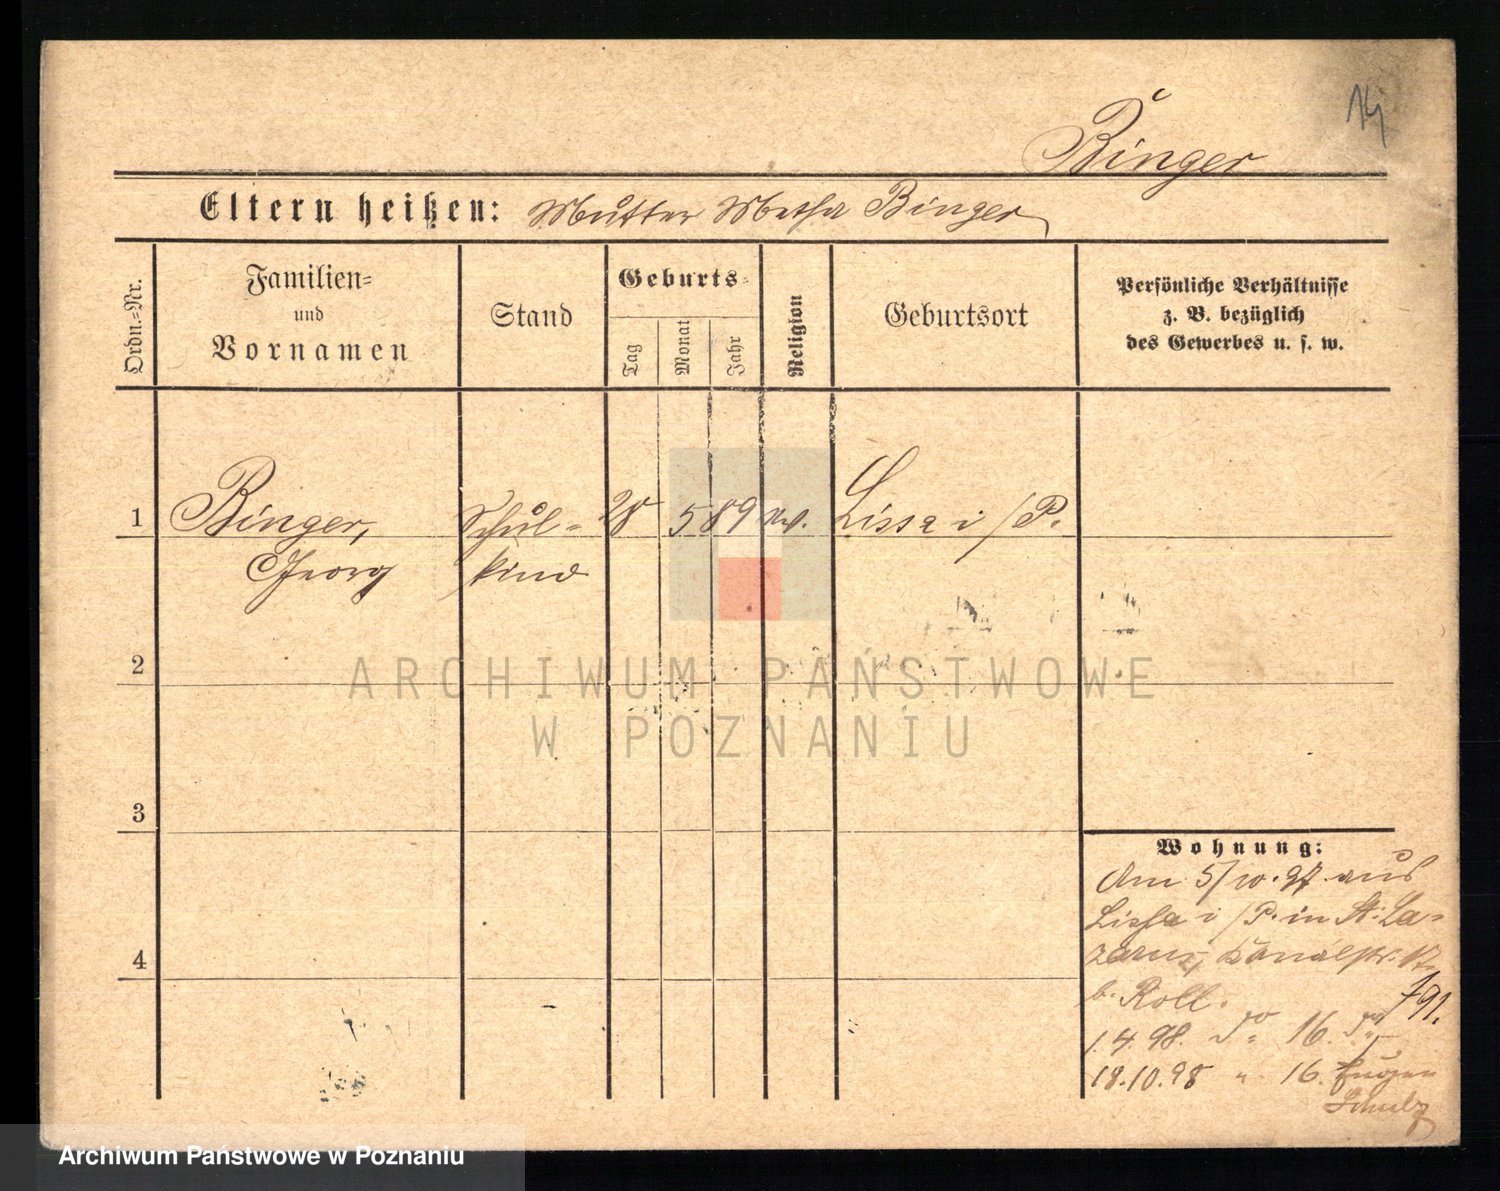 14
Binger
Eltern heißen: Mutter Metha Binger
Ordn.=Nr.
Familien=
und
Vornamen
Stand
Geburts=
Tag
Monat
Jahr
Religion
Geburtsort
Persönliche Verhältnisse
z. B. bezüglich
des Gewerbes u. s. w.
1 Binger, Schul= 28 5 89 ev. Lissa i/P.
Georg kind
2
ARCHIWUM PAŃSTWOWE
W POZNANIU
3
Wohnung:
Am 5/10.97 aus
Lissa i/P. in St. La=
zarus, Kanalstr. 17
4
b. Roll. 791.
1.4.98. do 16.
18.10.98 " 16. Eugen
Schulz
Archiwum Państwowe w Poznaniu